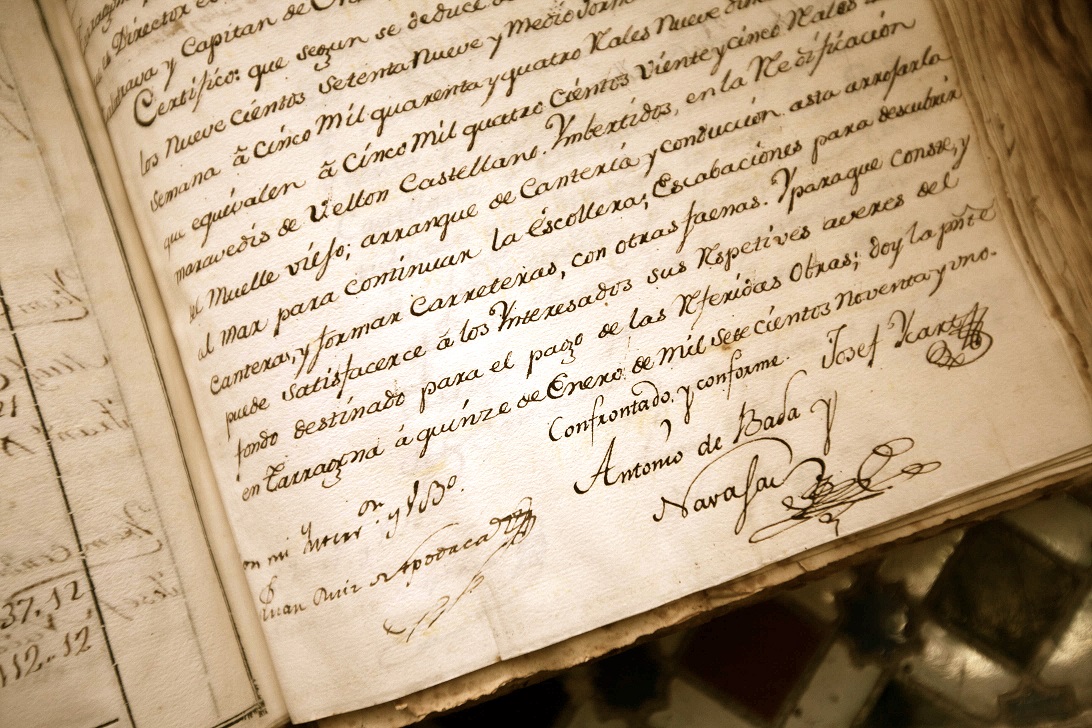 Director
trava y Capitan de
Certifico: que segun se deduce
los Nueve cientos Setenta Nueve y Medio
Semana â Cinco Mil quarenta y quatro Rales Nueve
que equivalen â Cinco Mil quatro Cientos Veinte y cinco Rales
maravedis de Vellon Castellano. Ymbertidos, en la Redificación
del Muelle viejo; arranque de Cantería y conducción asta arrojarla
al mar para continuar la Escollera; Escabaciones para descubrir
Canteras, y formar Carreteras, con otras faenas. Y para que conste, y
puede Satisfacerce â los Ynteresados sus Rspetives averes del
fondo destinado para el pago de las Rferidas Obras; doy la pñte
en Tarragona á quinze de Enero de Mil Sete Cientos Noventa y uno.
Confrontado, y conforme. Josef Ycart
Antonio de Bada y
Navajas
on mi Ynterv.on y Vº Bº.
Juan Ruiz de Apodaca
37.12
112..12